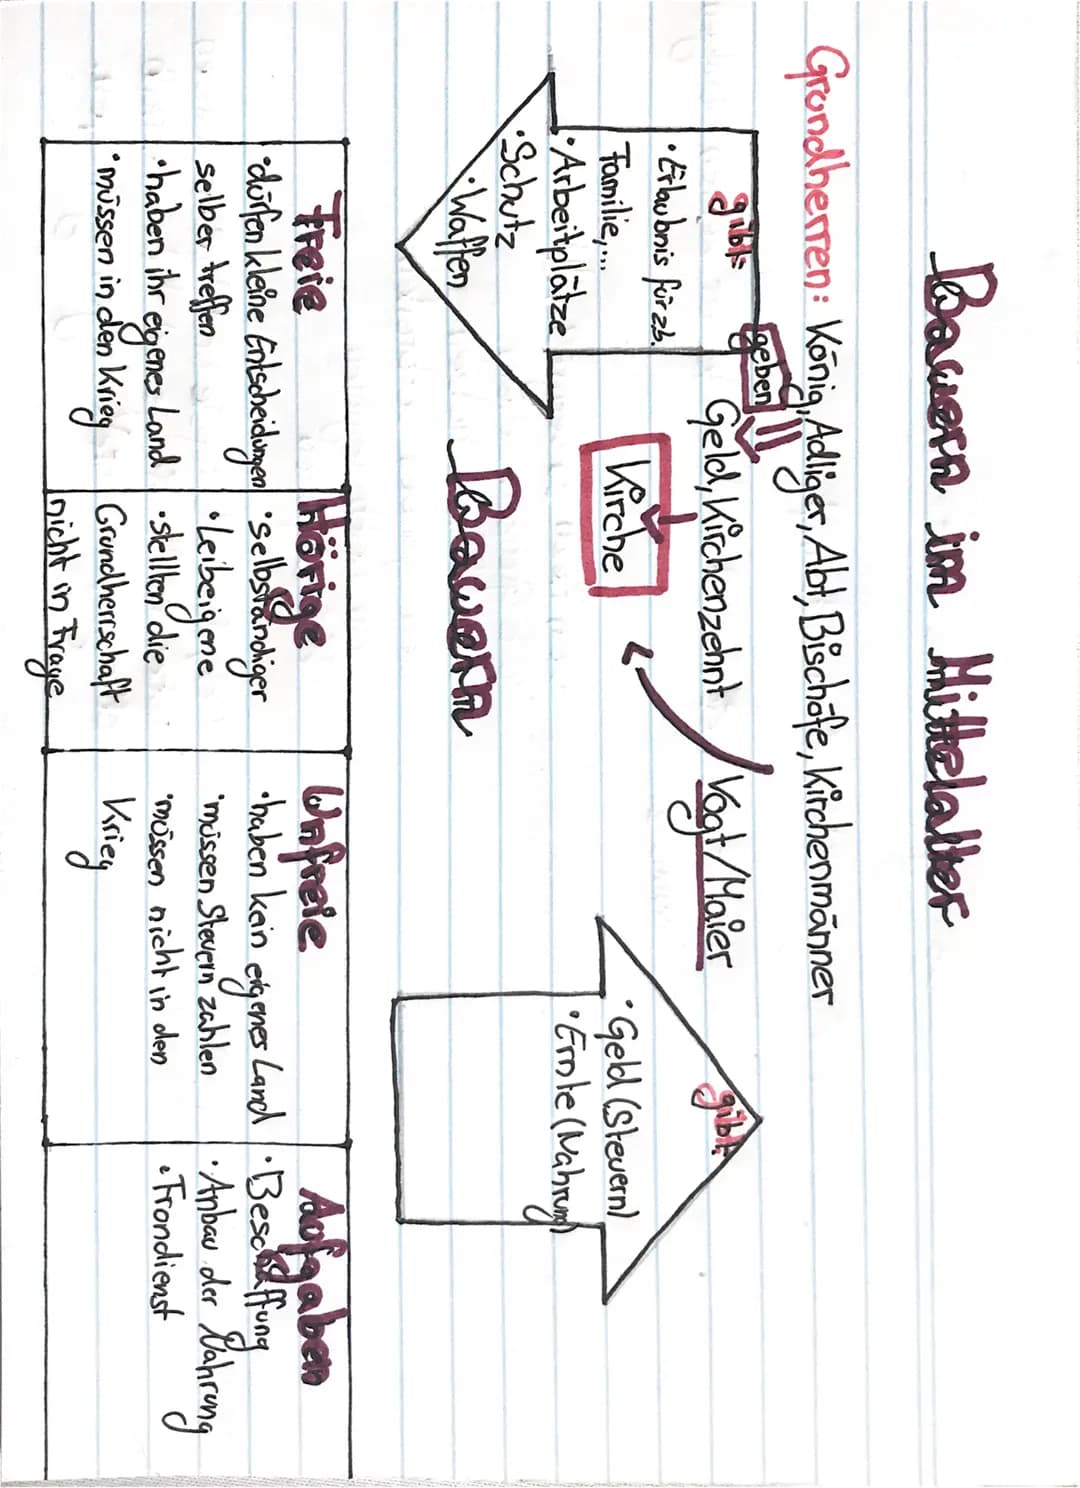 Bauern im Mittelalter
Grundherren: König, Adliger, Abt, Bischöfe, Kirchenmänner
geben
gibt:
• Erlaubnis für zb.
Familie,...
• Arbeitplätze
• Schutz
• Waffen
Geld, Kirchenzehnt
Kirche
Vogt/Maier
gibt:
• Geld (Steuern)
• Ernte (Nahrung)
Bauern
Freie
• dürfen kleine Entscheidungen
selber treffen
• haben ihr eigenes Land
• müssen in den Krieg
Hörige
• selbständiger
• Leibeigene
• stellten die
Grundherrschaft
nicht in Frage
Unfreie
• haben kein eigenes Land
• müssen Steuern zahlen
• müssen nicht in den
Krieg
Aufgaben
• Beschaffung
• Anbau der Nahrung
• Frondienst